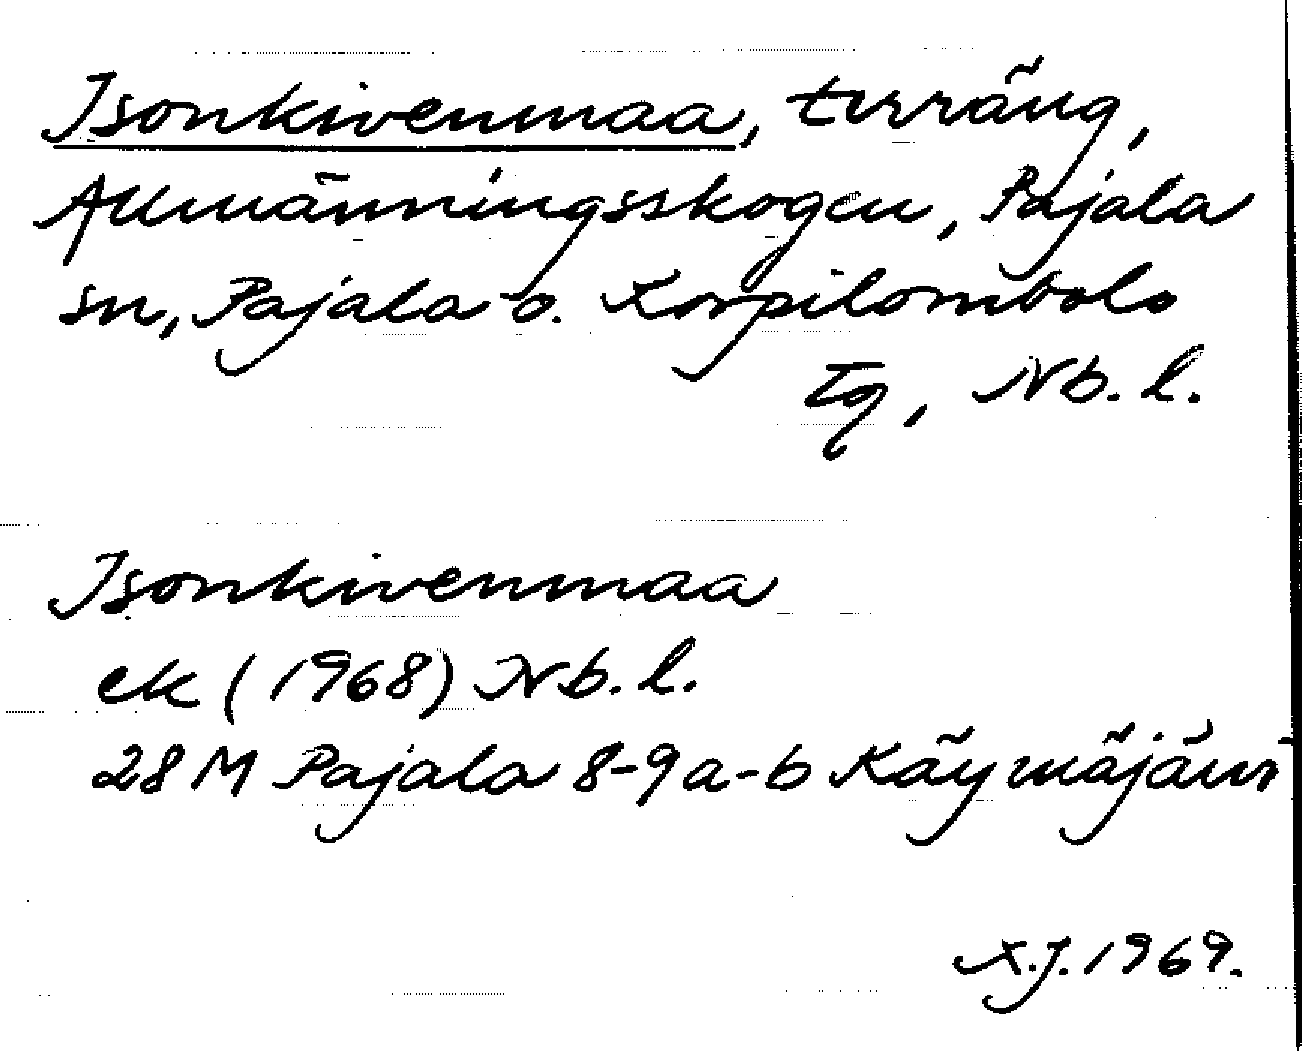 Isonkivenmaa, terräng,
Allmänningsskogen, Pajala
sn, Pajala o. Korpilombolo
tg, Nb. l.
Isonkivenmaa
ek (1968) Nb. l.
28 M Pajala 8-9 a-b Käymäjärvi
K.J. 1969.